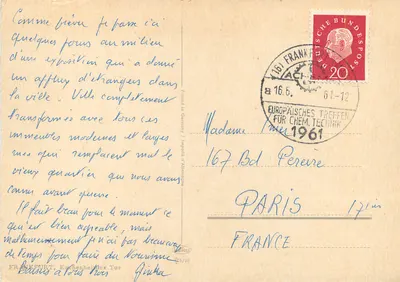 Comme prévu je passe ici
quelques jours au milieu
d'une exposition qui a donné
un afflux d'étrangers dans
la ville. Ville complètement
transformée avec tous ces
immeubles modernes et larges
rues qui remplacent mal le
vieux quartier que nous avons
connu avant guerre.
Il fait beau pour le moment ce
qui est bien agréable, mais
malheureusement je n'ai pas beaucoup
de temps pour faire du tourisme
Baisers à tous trois
FRANKFURT
DEUTSCHE BUNDESPOST
20
(16) FRANKF
ACHEMA
a 16.6. 61-12
EUROPÄISCHES TREFFEN
FÜR CHEM. TECHNIK
1961
Madame
167 Bd Pereire
PARIS 17
FRANCE